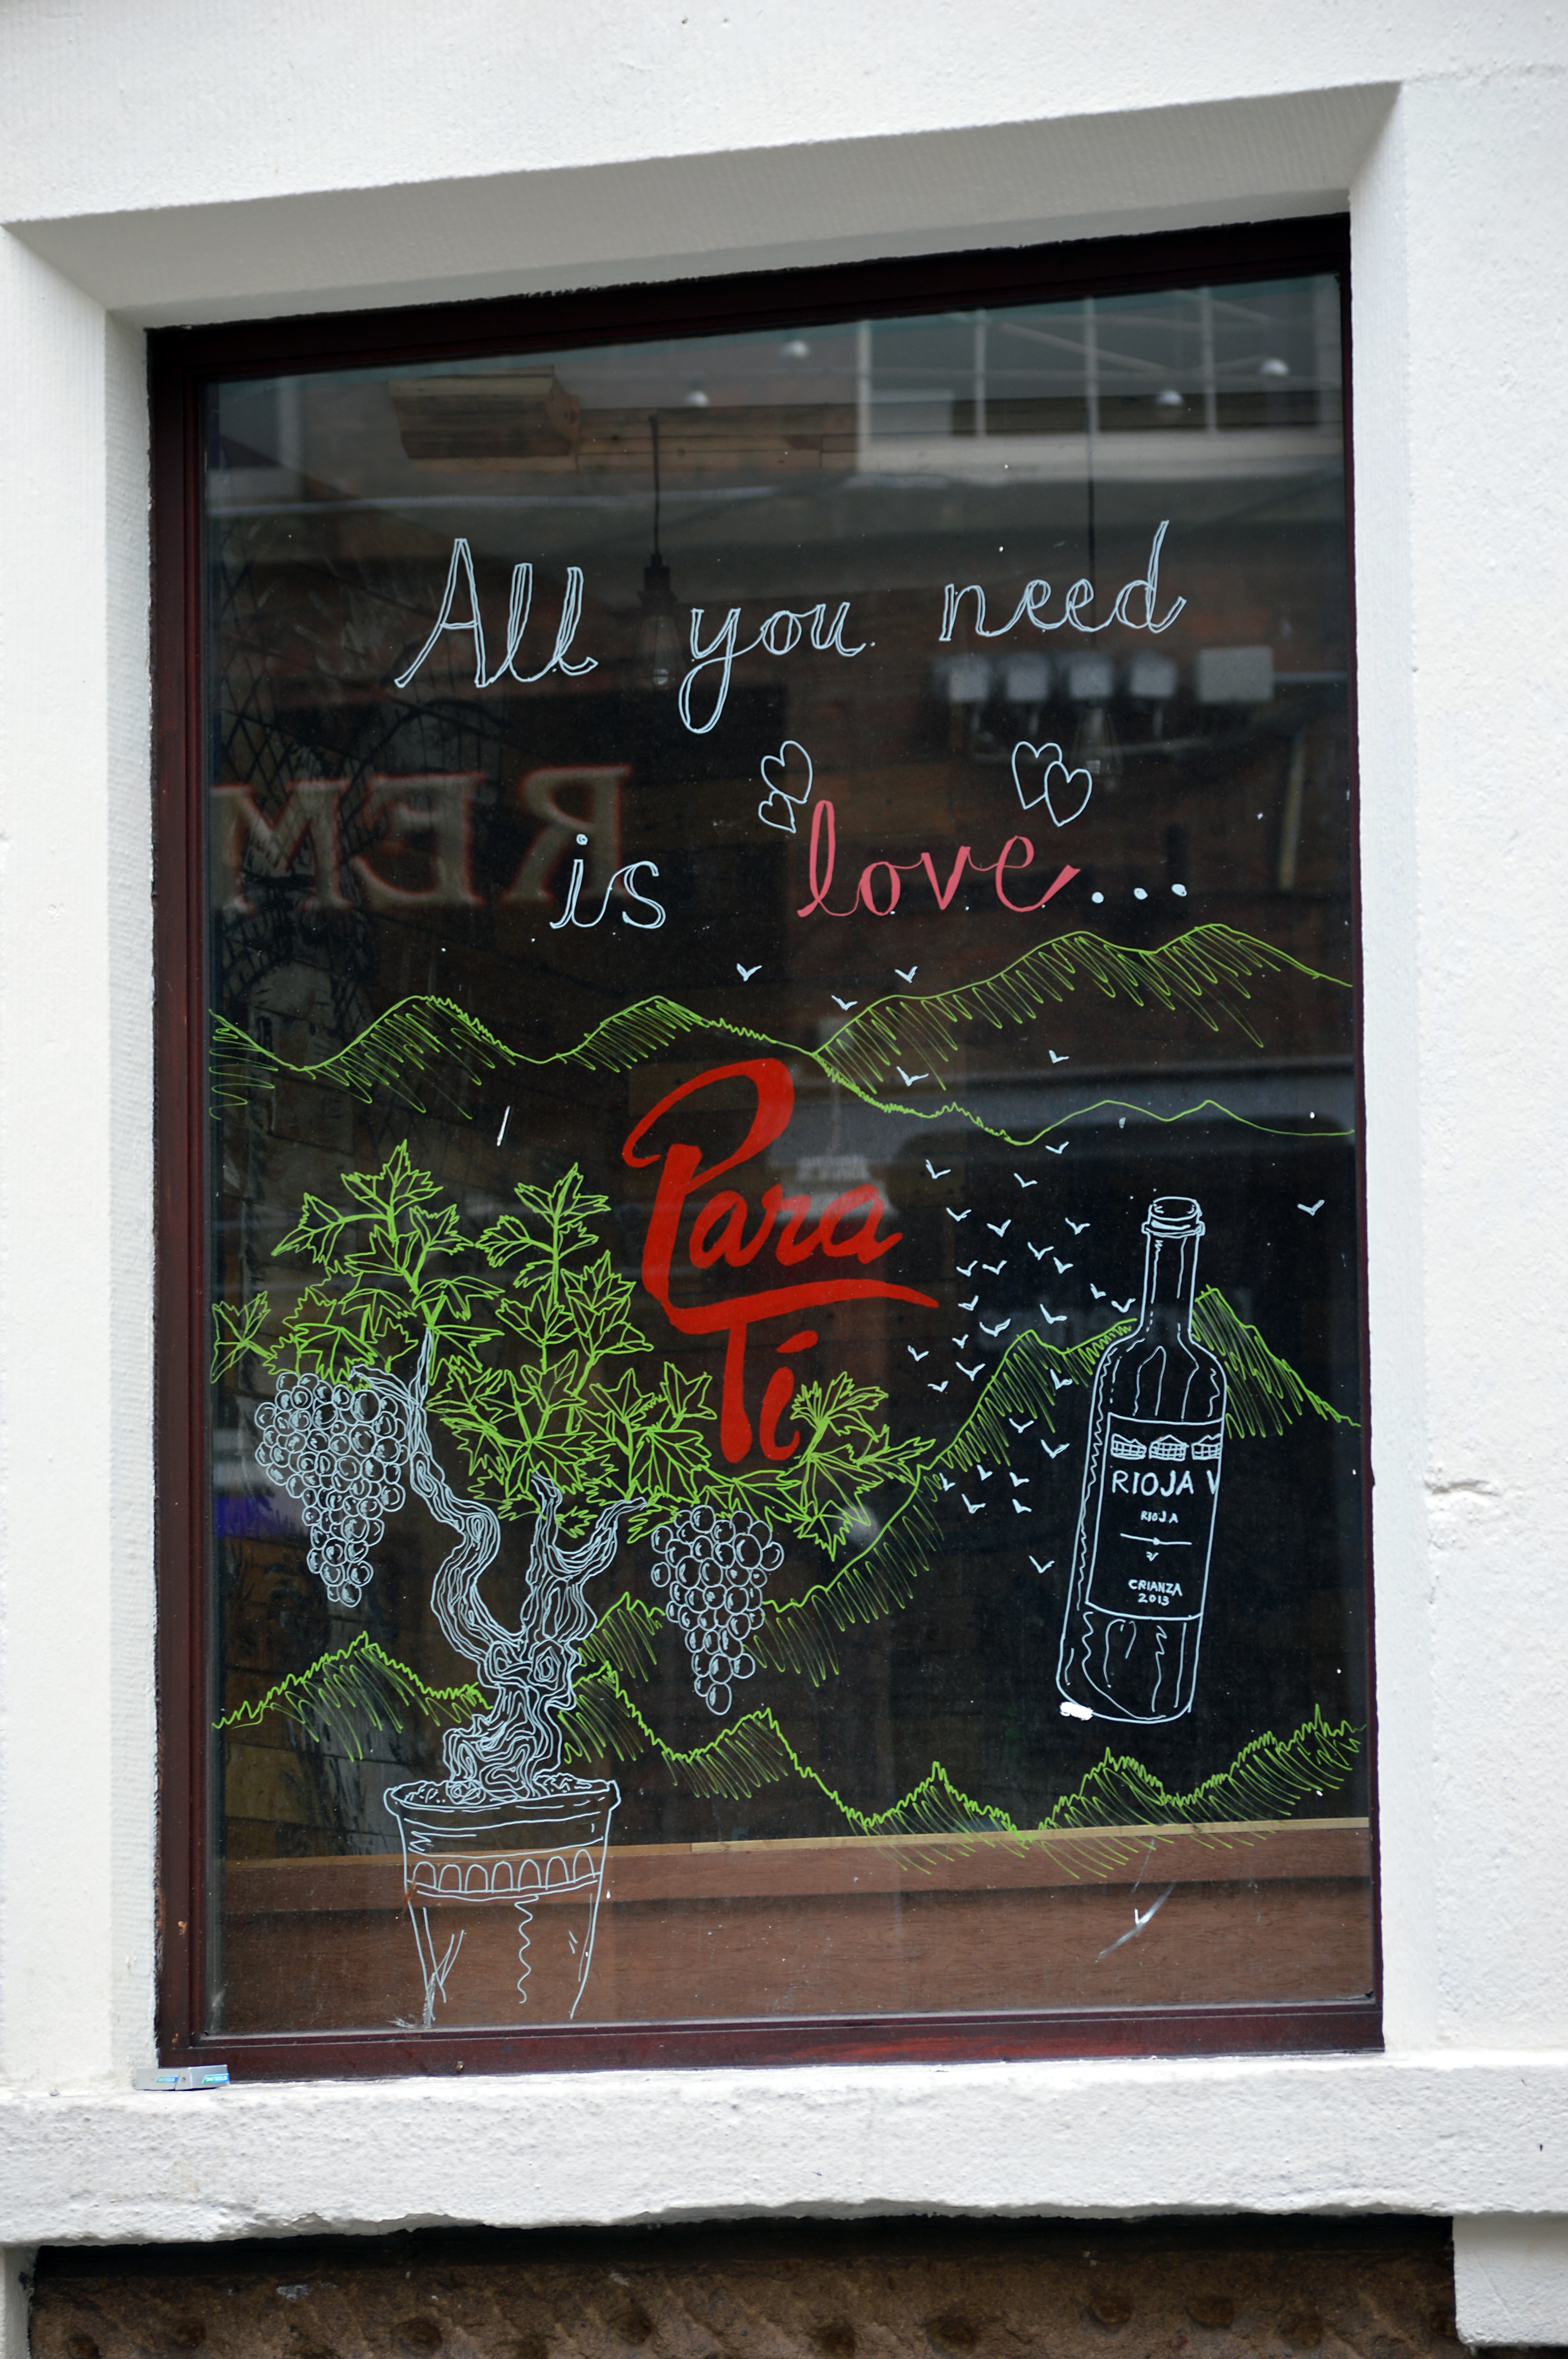 All you need
is love...
REM
Para
Tí
RIOJA V
RIOJA
CRIANZA
2013